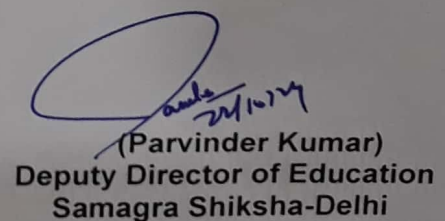 22/10/24
(Parvinder Kumar)
Deputy Director of Education
Samagra Shiksha-Delhi